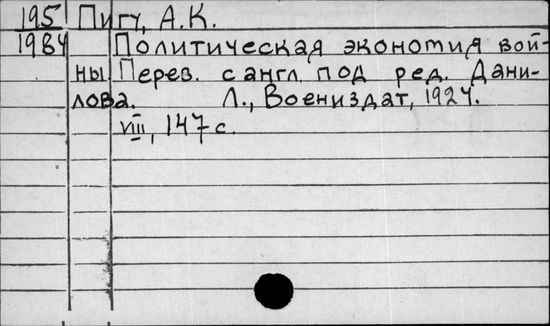 195 Пигу, А.К.
1984 Политическая экономия вой-
ны. Перев. с англ. под ред. Дани-
лова. Л., Воениздат, 1924.
VIII, 147 с.